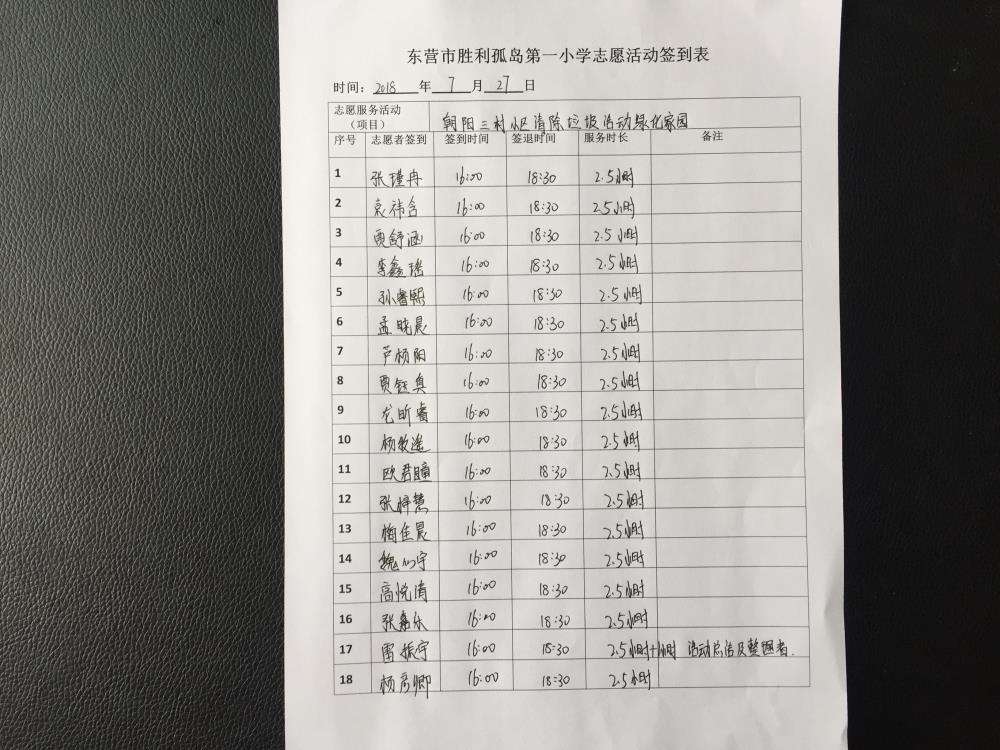 东营市胜利孤岛第一小学志愿活动签到表
时间：2018 年 7 月 27 日
志愿服务活动（项目） 朝阳三村小区清除垃圾活动绿化家园
序号 志愿者签到 签到时间 签退时间 服务时长 备注
1 张瑾冉 16:00 18:30 2.5小时
2 袁祎含 16:00 18:30 2.5小时
3 贾舒涵 16:00 18:30 2.5小时
4 李鑫瑶 16:00 18:30 2.5小时
5 孙睿熙 16:00 18:30 2.5小时
6 孟晓晨 16:00 18:30 2.5小时
7 芦杨阳 16:00 18:30 2.5小时
8 贾钰真 16:00 18:30 2.5小时
9 龙昕睿 16:00 18:30 2.5小时
10 杨 16:00 18:30 2.5小时
11 欧君瞳 16:00 18:30 2.5小时
12 张梓慧 16:00 18:30 2.5小时
13 梅佳晨 16:00 18:30 2.5小时
14 魏心宇 16:00 18:30 2.5小时
15 高悦清 16:00 18:30 2.5小时
16 张嘉乐 16:00 18:30 2.5小时
17 雷振宇 16:00 18:30 2.5小时+1小时 活动总结及整理者.
18 杨彦卿 16:00 18:30 2.5小时